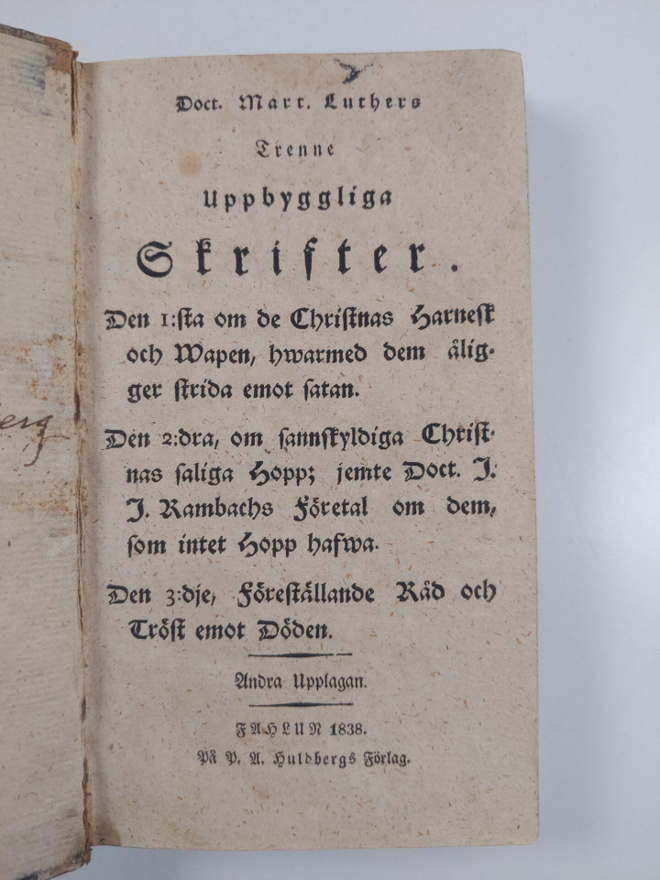 Doct. Mart. Luthers
Trenne
Uppbyggliga
Skrifter.
Den 1:sta om de Christnas Harnesk
och Wapen, hwarmed dem ålig-
ger strida emot satan.
Den 2:dra, om sannskyldiga Christ-
nas saliga Hopp; jemte Doct. J.
J. Rambachs Företal om dem,
som intet Hopp hafwa.
Den 3:dje, Föreställande Råd och
Tröst emot Döden.
Andra Upplagan.
FAHLUN 1838.
På P. A. Huldbergs Förlag.